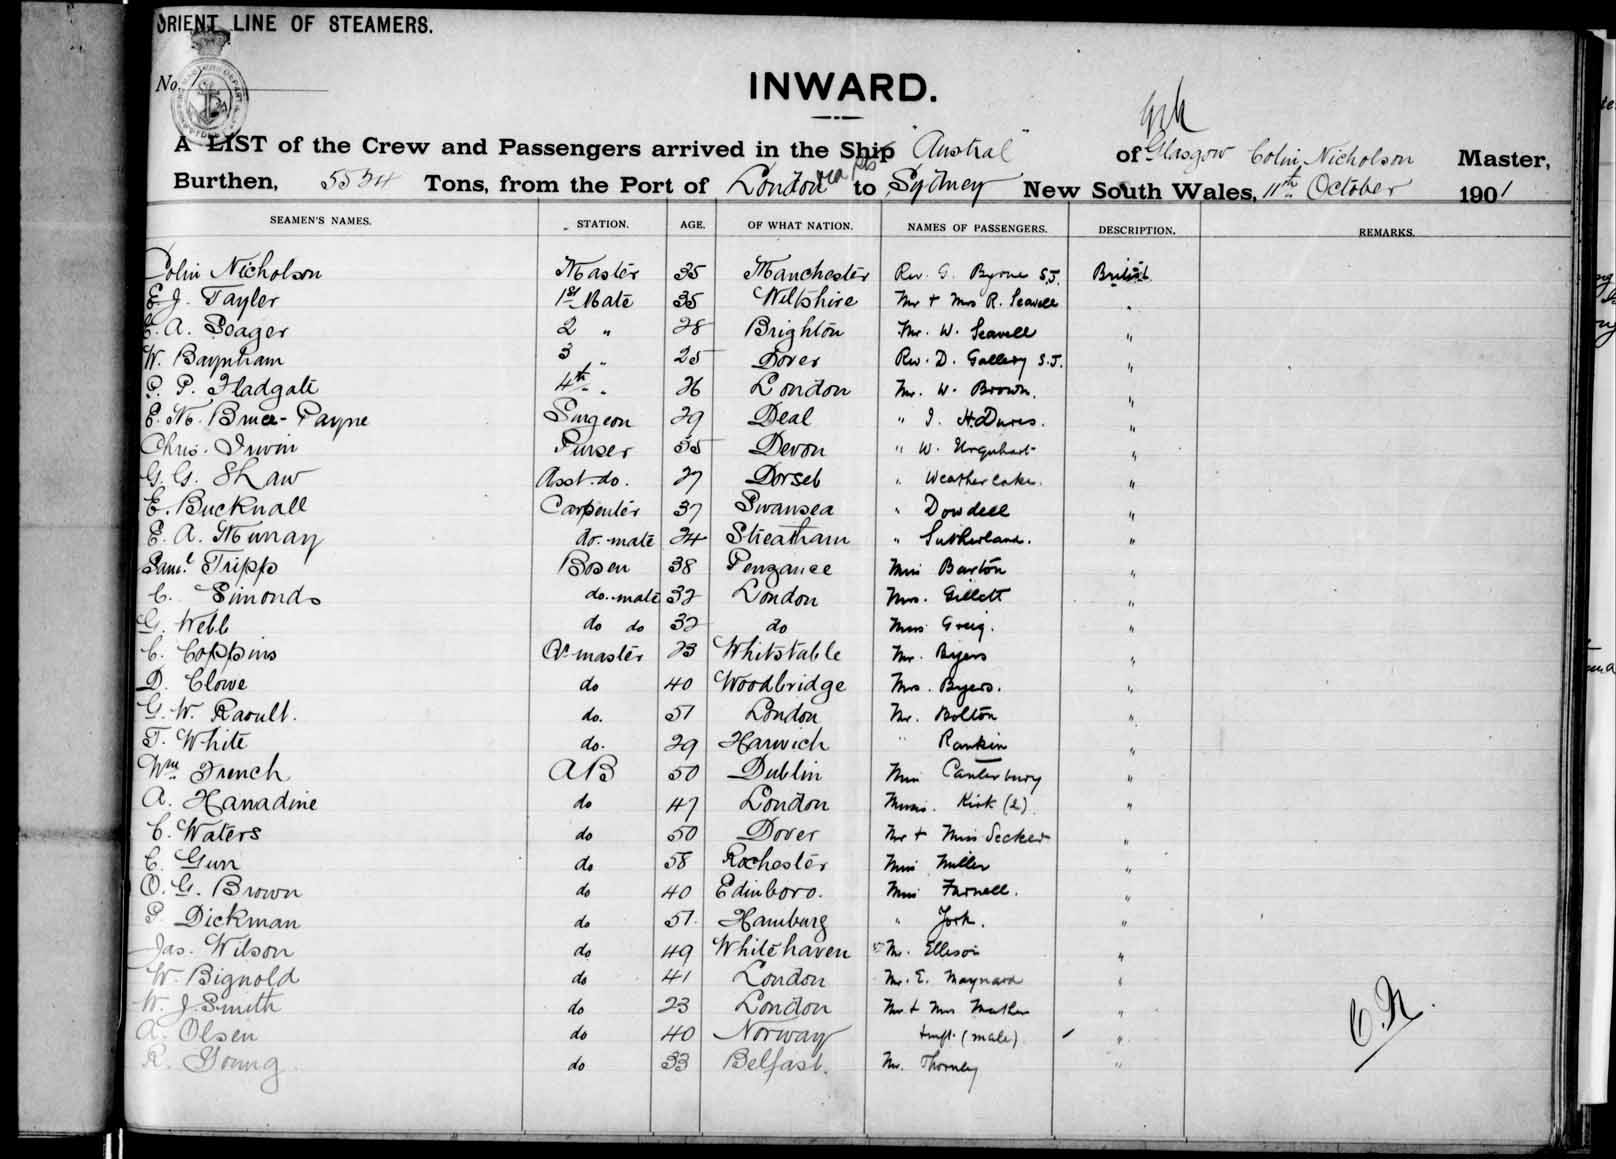 ORIENT LINE OF STEAMERS.
No.
INWARD.
A LIST of the Crew and Passengers arrived in the Ship "Austral" of Glasgow Colin Nicholson Master,
Burthen, 5524 Tons, from the Port of London via pts to Sydney New South Wales, 11th October 1901
SEAMEN'S NAMES. STATION. AGE. OF WHAT NATION. NAMES OF PASSENGERS. DESCRIPTION. REMARKS.
Colin Nicholson Master 35 Manchester Rev. G. Byrne S.J. British
E. J. Tayler 1st Mate 35 Wiltshire Mr + Mrs R. Seavell "
E. A. Seager 2 " 28 Brighton Mr. W. Seavell "
W. Baynham 3 " 25 Dover Rev. D. Gallery S.J. "
P. P. Fladgate 4th " 26 London Mr. W. Brown. "
E. M. Bruce-Payne Surgeon 29 Deal " "
Chris. Irwin Purser 35 Devon " W. Urquhart "
G. G. Shaw Asst. do. 27 Dorset " Weatherlake. "
E. Bucknall Carpenter 37 Swansea " Dowdell "
E. A. Murray do. mate 24 Streatham " Sutherland. "
Saml. Tripp Bosen 38 Penzance Miss Burton "
C. Simonds do. mate 32 London Mrs. Gillett "
G. Webb do do 32 do Miss Greig. "
C. Coppins Qr master 23 Whitstable Mr. Byers "
D. Clowe do 40 Woodbridge Mrs. Byers. "
G. W. Raoult. do. 51 London Mr. Bolton "
T. White do. 29 Harwich " Rankin "
Wm French AB 50 Dublin Miss Canterbury "
A. Hanadine do 47 London Misses. Kirk (2) "
C. Waters do 50 Dover Mr + Miss Secker "
C. Gunn do 58 Rochester Miss Miller "
O. G. Brown do 40 Edinboro. Miss Farnell. "
P. Dickman do 51 Hamburg " York. "
Jas. Wilson do 49 Whitehaven Mr. Ellison "
W. Bignold do 41 London Mr. E. Maynard "
W. J. Smith do 23 London Mr + Mrs Mather "
A. Olsen do 40 Norway + inft. (male) "
R. Young do 33 Belfast. Mr. Thornley "
C.N.